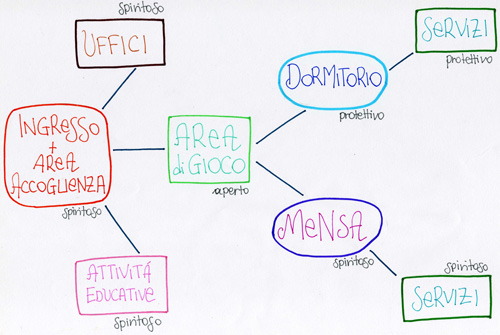 spiritoso
UFFICI
SERVIZI
protettivo
DORMITORIO
protettivo
INGRESSO
+
AREA
ACCOGLIENZA
spiritoso
AREA
di GIOCO
aperto
MENSA
spiritoso
ATTIVITÁ
EDUCATIVE
spiritoso
spiritoso
SERVIZI